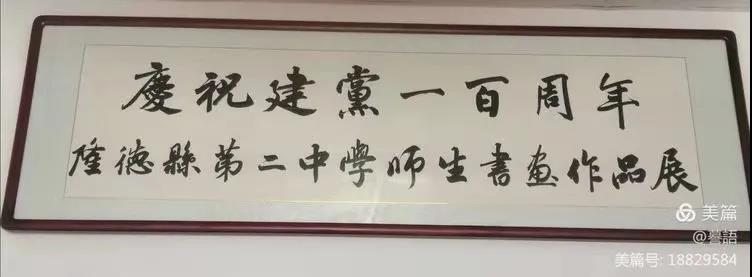 慶祝建黨一百周年
隆德縣第二中學師生書画作品展
美篇
@譽語
美篇号: 18829584